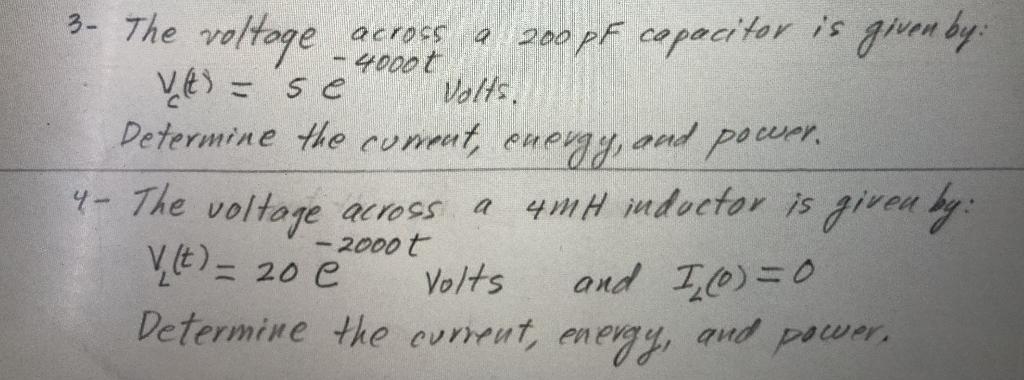 3- The voltage across a 200 pF capacitor is given by:
Vc(t) = 5 e^-4000t Volts.
Determine the current, energy, and power.
4- The voltage across a 4mH inductor is given by:
VL(t) = 20 e^-2000t Volts and IL(0) = 0
Determine the current, energy, and power.